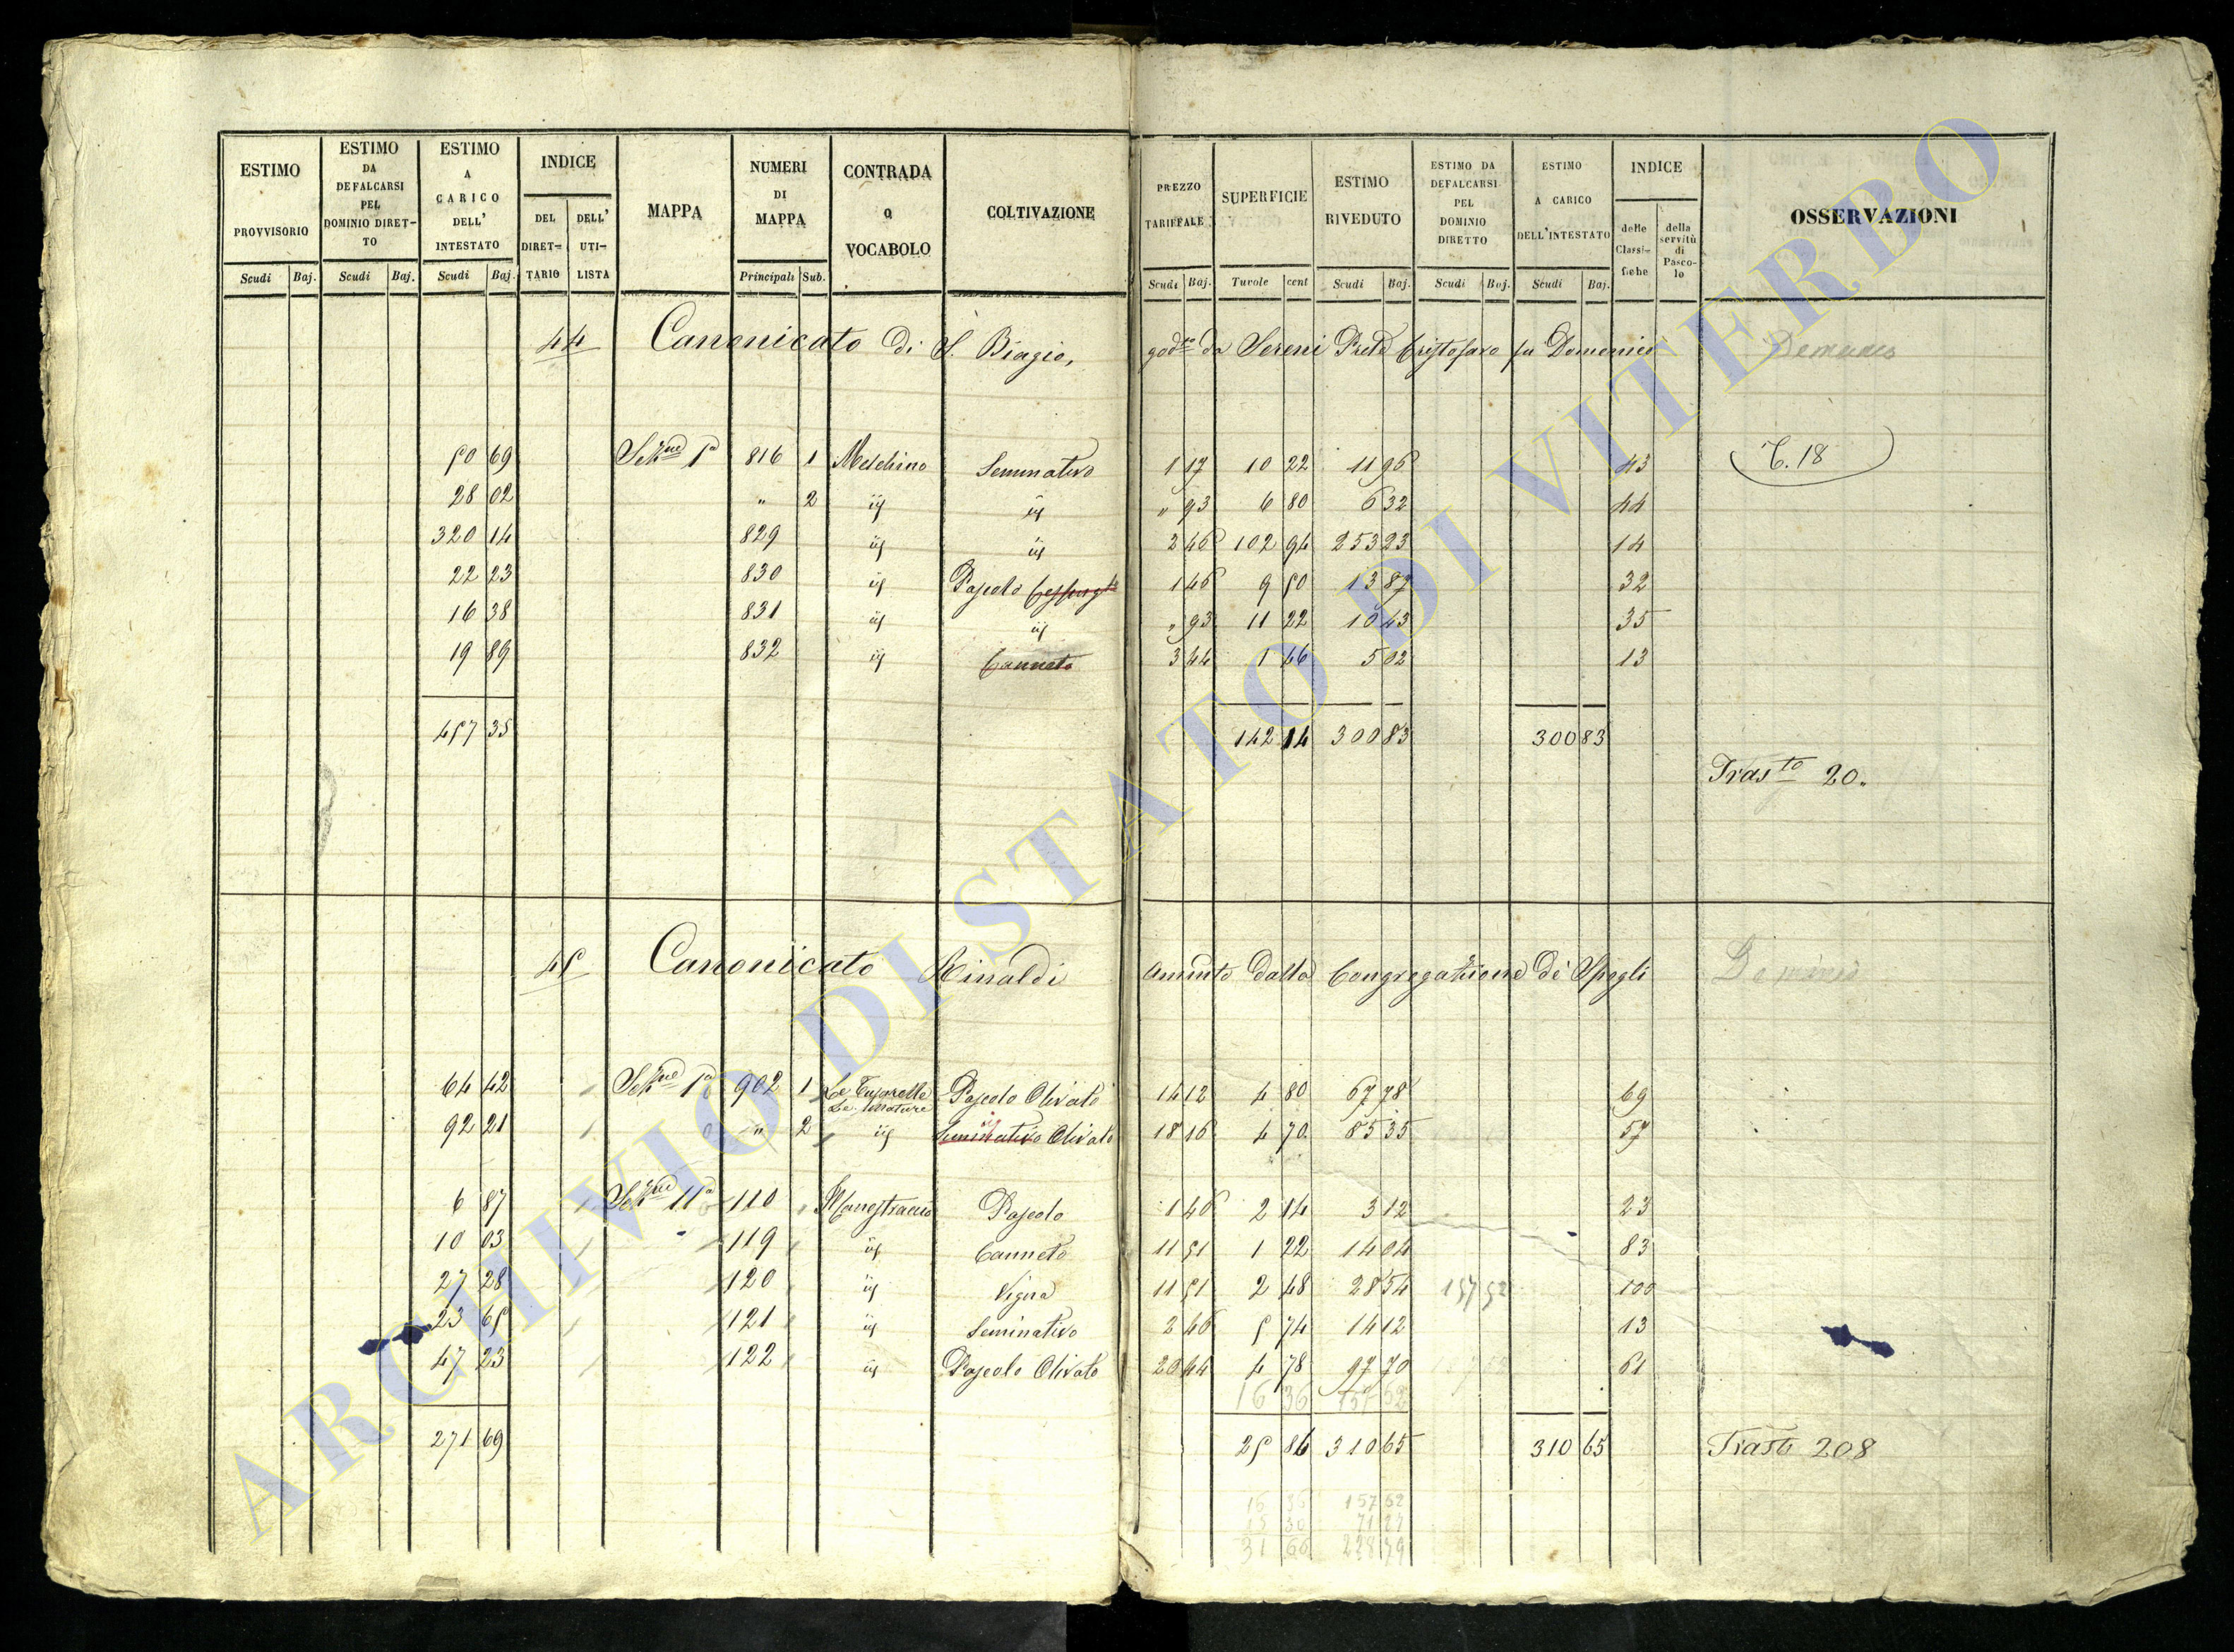 ESTIMO PROVVISORIO
Scudi Baj.
ESTIMO DA DEFALCARSI PEL DOMINIO DIRETTO
Scudi Baj.
ESTIMO A CARICO DELL' INTESTATO
Scudi Baj.
INDICE
DEL DIRETTARIO
DELL' UTILISTA
MAPPA
NUMERI DI MAPPA
Principali Sub.
CONTRADA o VOCABOLO
COLTIVAZIONE
PREZZO TARIFFALE
Scudi Baj.
SUPERFICIE
Tavole cent
ESTIMO RIVEDUTO
Scudi Baj.
ESTIMO DA DEFALCARSI PEL DOMINIO DIRETTO
Scudi Baj.
ESTIMO A CARICO DELL'INTESTATO
Scudi Baj.
INDICE
delle Classifiche
della servitù di Pascolo
OSSERVAZIONI
44 Canonicato di S. Biagio, god.to da Sereni Prete Cristofaro fu Domenico
50 69 Sez.ne 1a 816 1 Meschino Seminativo 1 17 10 22 11 96 43 C. 18
28 02 " 2 id id " 93 6 80 6 32 44
320 14 829 id id 2 46 102 94 253 23 14
22 23 830 id Pascolo 1 46 9 50 13 87 32
16 38 831 id id " 93 11 22 10 43 35
19 89 832 id Canneto 3 44 1 46 5 02 13
457 35 142 14 300 83 300 83
Tras.to 20.
45 Canonicato Rinaldi Ammto dalla Congregazione de' Spogli
64 42 Sez.ne 1a 902 1 Pascolo Olivato 14 12 4 80 67 78 69
92 21 " 2 id Seminativo Olivato 18 16 4 70 85 35 57
6 87 Sez.ne 11a 110 Pascolo 1 46 2 14 3 12 23
10 03 119 id Canneto 11 51 1 22 14 04 83
27 28 120 id Vigna 11 51 2 48 28 54 157 52 100
23 65 121 id Seminativo 2 46 5 74 14 12 13
47 23 122 id Pascolo Olivato 20 44 4 78 97 70 61
16 36 157 52
271 69 25 86 310 65 310 65 Trasto 208
16 36 157 52
15 30 71 27
31 66 228 79
ARCHIVIO DI STATO DI VITERBO